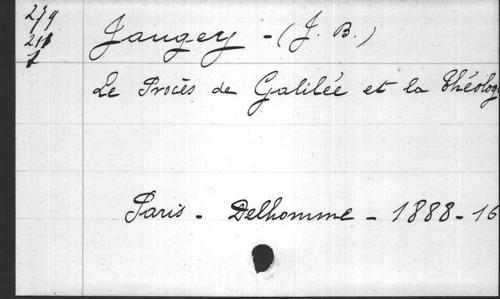 279
Jaugey - (J. B.)
Le Procès de Galilée et la Théolog
Paris - Delhomme - 1888 - 16